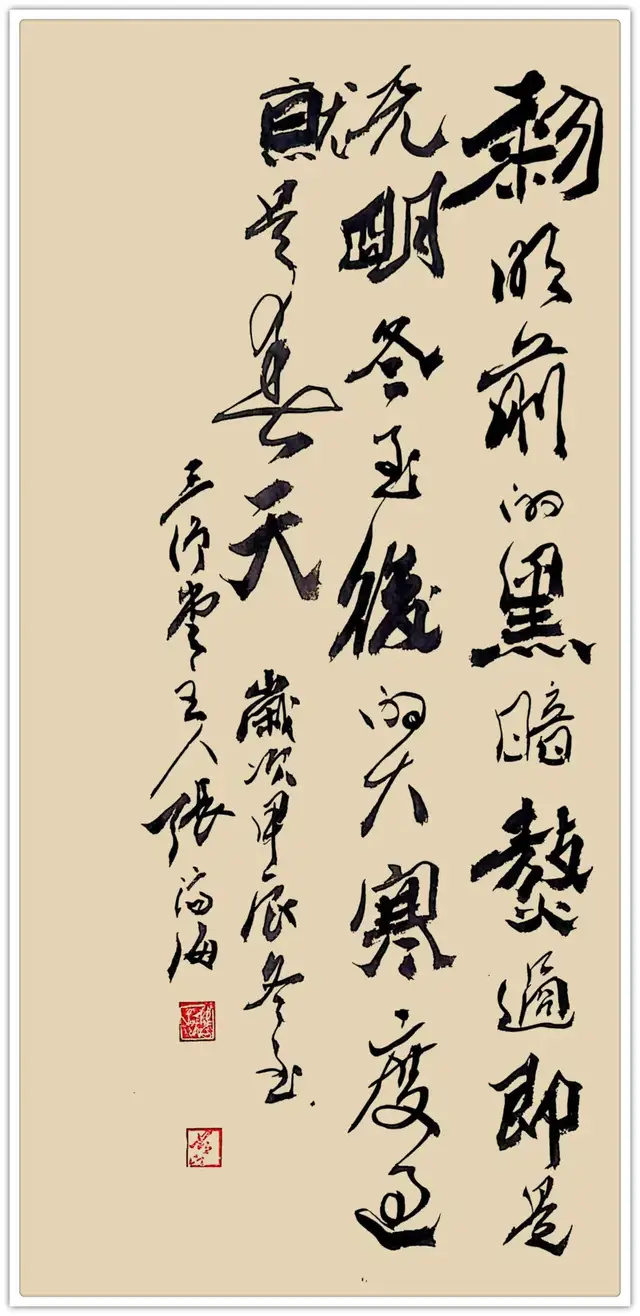 黎明前的黑暗熬過即是
光明冬至後的大寒度過
就是春天
歲次甲辰冬至
三 堂主人張 海